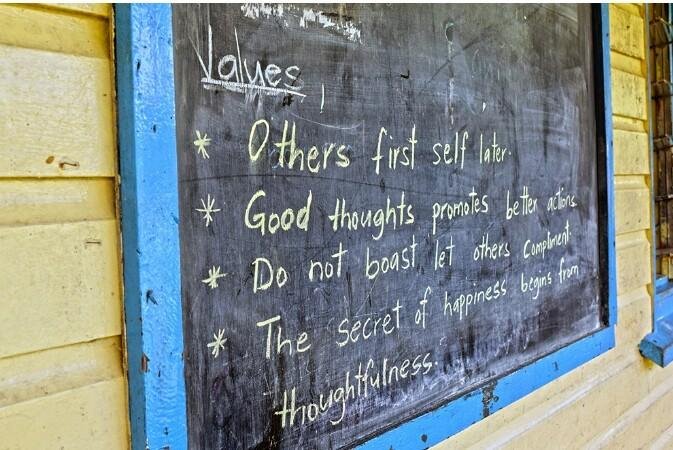 Values
* Others first self later.
* Good thoughts promotes better actions.
* Do not boast let others compliment.
* The secret of happiness begins from
thoughtfulness.